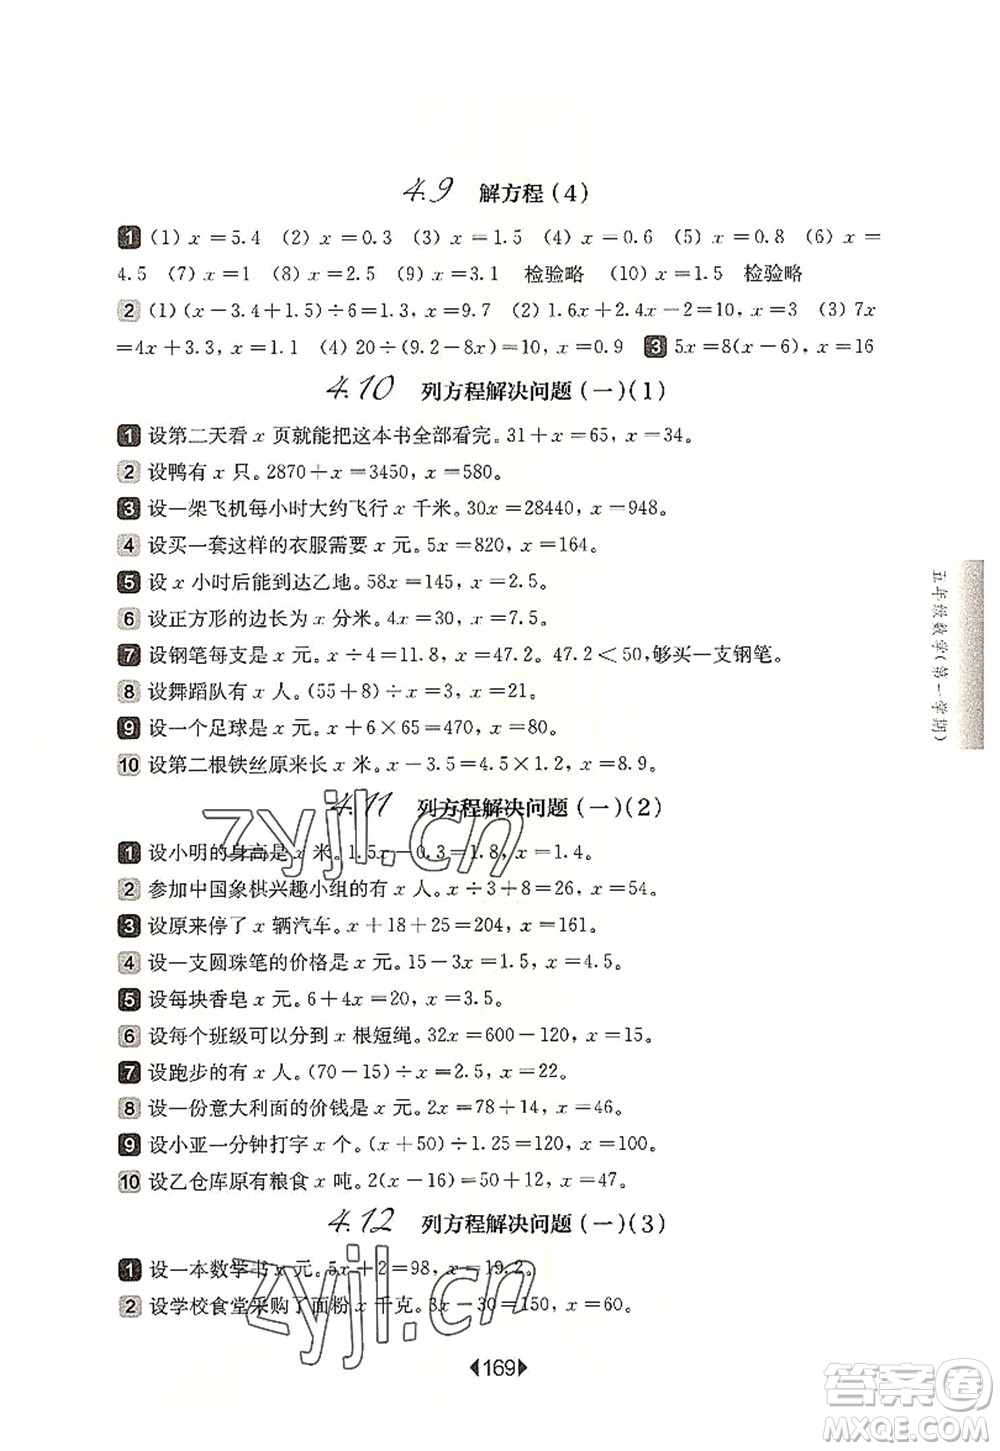 4.9 解方程(4)
1 (1) x=5.4 (2) x=0.3 (3) x=1.5 (4) x=0.6 (5) x=0.8 (6) x=
4.5 (7) x=1 (8) x=2.5 (9) x=3.1 检验略 (10) x=1.5 检验略
2 (1) (x-3.4+1.5)÷6=1.3, x=9.7 (2) 1.6x+2.4x-2=10, x=3 (3) 7x
=4x+3.3, x=1.1 (4) 20÷(9.2-8x)=10, x=0.9 3 5x=8(x-6), x=16
4.10 列方程解决问题(一)(1)
1 设第二天看 x 页就能把这本书全部看完。31+x=65, x=34。
2 设鸭有 x 只。2870+x=3450, x=580。
3 设一架飞机每小时大约飞行 x 千米。30x=28440, x=948。
4 设买一套这样的衣服需要 x 元。5x=820, x=164。
5 设 x 小时后能到达乙地。58x=145, x=2.5。
6 设正方形的边长为 x 分米。4x=30, x=7.5。
7 设钢笔每支是 x 元。x÷4=11.8, x=47.2。47.2<50,够买一支钢笔。
8 设舞蹈队有 x 人。(55+8)÷x=3, x=21。
9 设一个足球是 x 元。x+6×65=470, x=80。
10 设第二根铁丝原来长 x 米。x-3.5=4.5×1.2, x=8.9。
4.11 列方程解决问题(一)(2)
1 设小明的身高是 x 米。1.5x-0.3=1.8, x=1.4。
2 参加中国象棋兴趣小组的有 x 人。x÷3+8=26, x=54。
3 设原来停了 x 辆汽车。x+18+25=204, x=161。
4 设一支圆珠笔的价格是 x 元。15-3x=1.5, x=4.5。
5 设每块香皂 x 元。6+4x=20, x=3.5。
6 设每个班级可以分到 x 根短绳。32x=600-120, x=15。
7 设跑步的有 x 人。(70-15)÷x=2.5, x=22。
8 设一份意大利面的价钱是 x 元。2x=78+14, x=46。
9 设小亚一分钟打字 x 个。(x+50)÷1.25=120, x=100。
10 设乙仓库原有粮食 x 吨。2(x-16)=78-16, x=47。
4.12 列方程解决问题(一)(3)
1 设一本数学书 x 元。5x+2=98, x=19.2。
2 设学校食堂采购了面粉 x 千克。3x-30=150, x=60。
169
五年级数学(第一学期)
zyjl.cn
zyjl.cn
答案圈
MXQE.COM